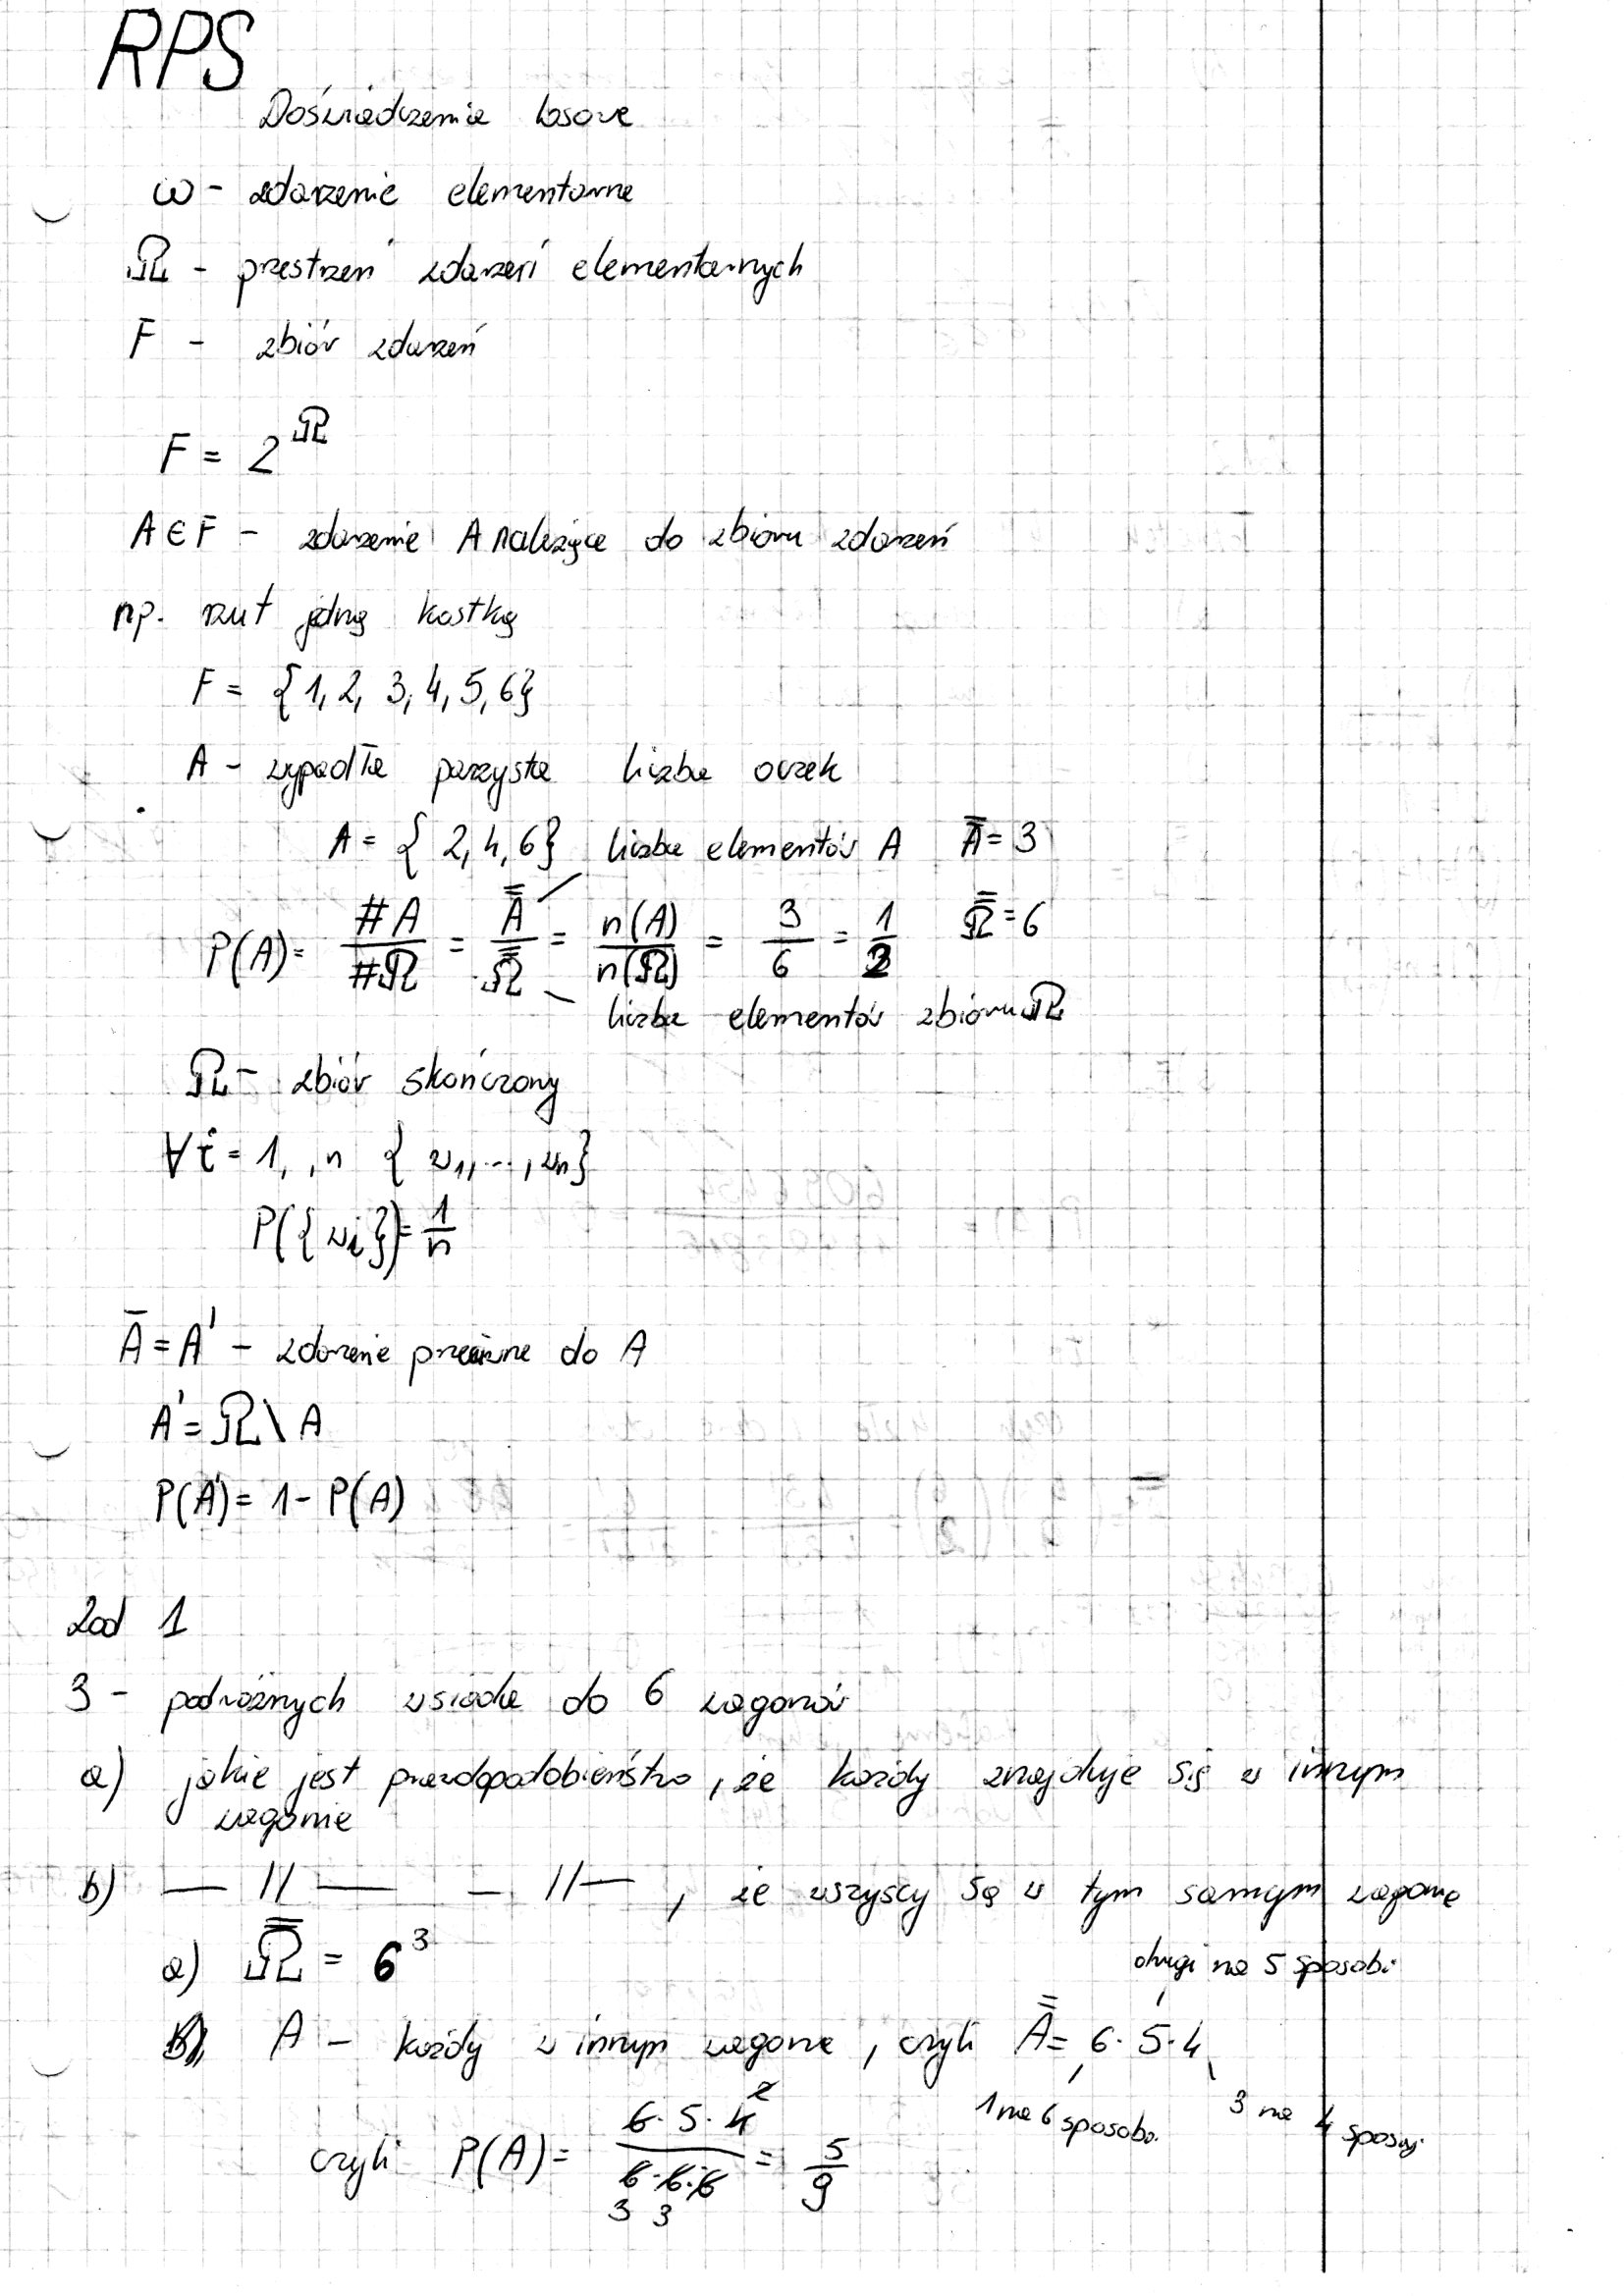 RPS
Doświadczenie losowe
ω - zdarzenie elementarne
Ω - przestrzeń zdarzeń elementarnych
F - zbiór zdarzeń
F = 2^Ω
A ∈ F - zdarzenie A należące do zbioru zdarzeń
np. rzut jedną kostką
F = {1, 2, 3, 4, 5, 6}
A - wypadła parzysta liczba oczek
A = {2, 4, 6} liczba elementów A A̿ = 3
P(A) = #A/#Ω = A̿/Ω̿ = n(A)/n(Ω) = 3/6 = 1/2 Ω̿ = 6
liczba elementów zbioru Ω
Ω - zbiór skończony
∀i = 1, , n {ω1, ..., ωn}
P({ωi}) = 1/n
A̅ = A' - zdarzenie przeciwne do A
A' = Ω \ A
P(A') = 1 - P(A)
Zad 1
3 - podróżnych wsiada do 6 wagonów
a) jakie jest prawdopodobieństwo, że każdy znajduje się w innym
wagonie
b) — // — — // —, że wszyscy są w tym samym wagonie
a) Ω̿ = 6^3
drugi na 5 sposobów
A - każdy w innym wagonie, czyli A̿ = 6 · 5 · 4
1 na 6 sposobów 3 na 4 sposoby
czyli P(A) = 6 · 5 · 4 / 6 · 6 · 6 = 5/9